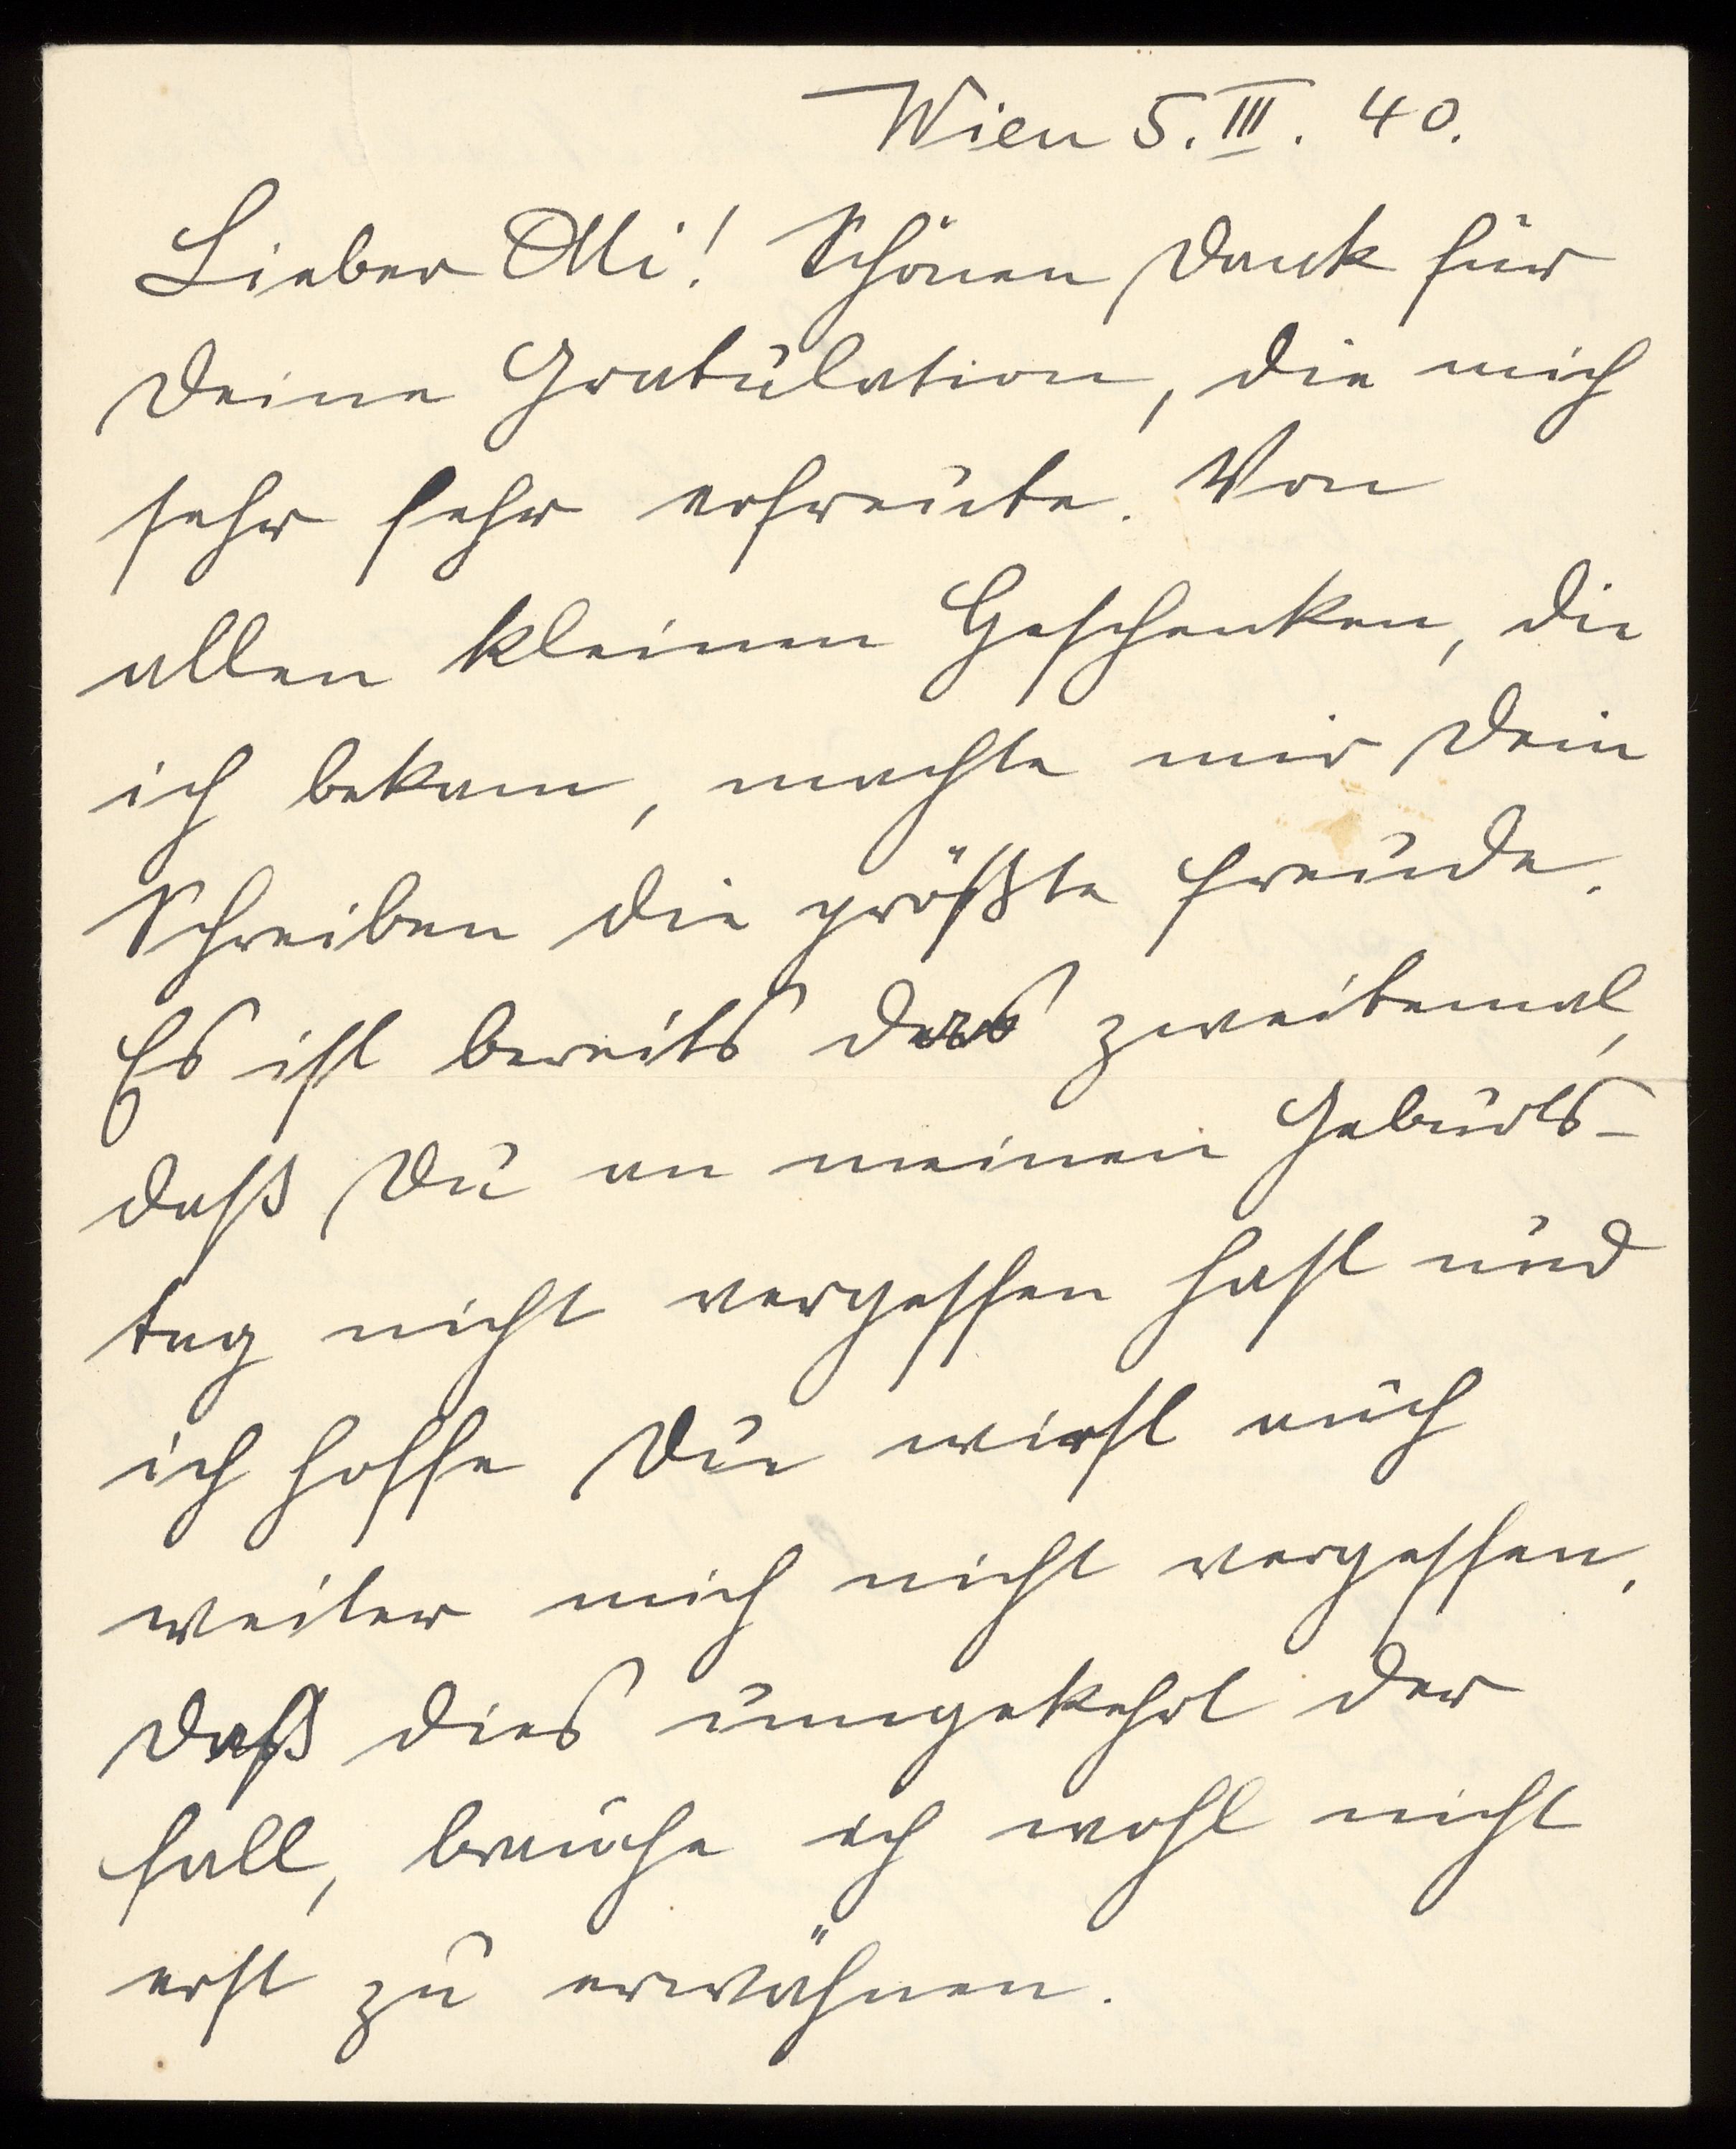 Wien 5. III. 40.
Lieber Olli! Schönen Dank für
Deine Gratulation, die mich
sehr sehr erfreute. Von
allen kleinen Geschenken, die
ich bekam, machte mir Dein
Schreiben die größte Freude.
Es ist bereits das zweitemal,
daß Du an meinen Geburts-
tag nicht vergessen hast und
ich hoffe Du wirst auch
weiter mich nicht vergessen.
Daß dies umgekehrt der
Fall, brauche ich wohl nicht
erst zu erwähnen.